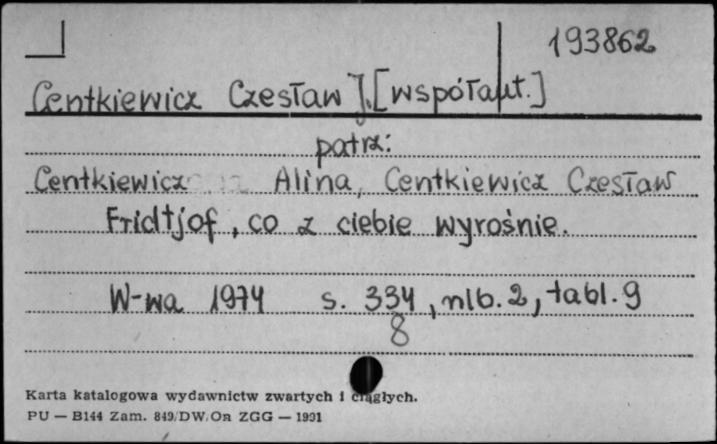 193862
Centkiewicz Czesław J. [współaut.]
patrz:
Centkiewicz Alina, Centkiewicz Czesław
Fridtjof, co z ciebie wyrośnie.
W-wa 1974 s. 334, nlb. 2, tabl. 9
8
Karta katalogowa wydawnictw zwartych i ciągłych.
PU — B144 Zam. 849/DW/On ZGG — 1991